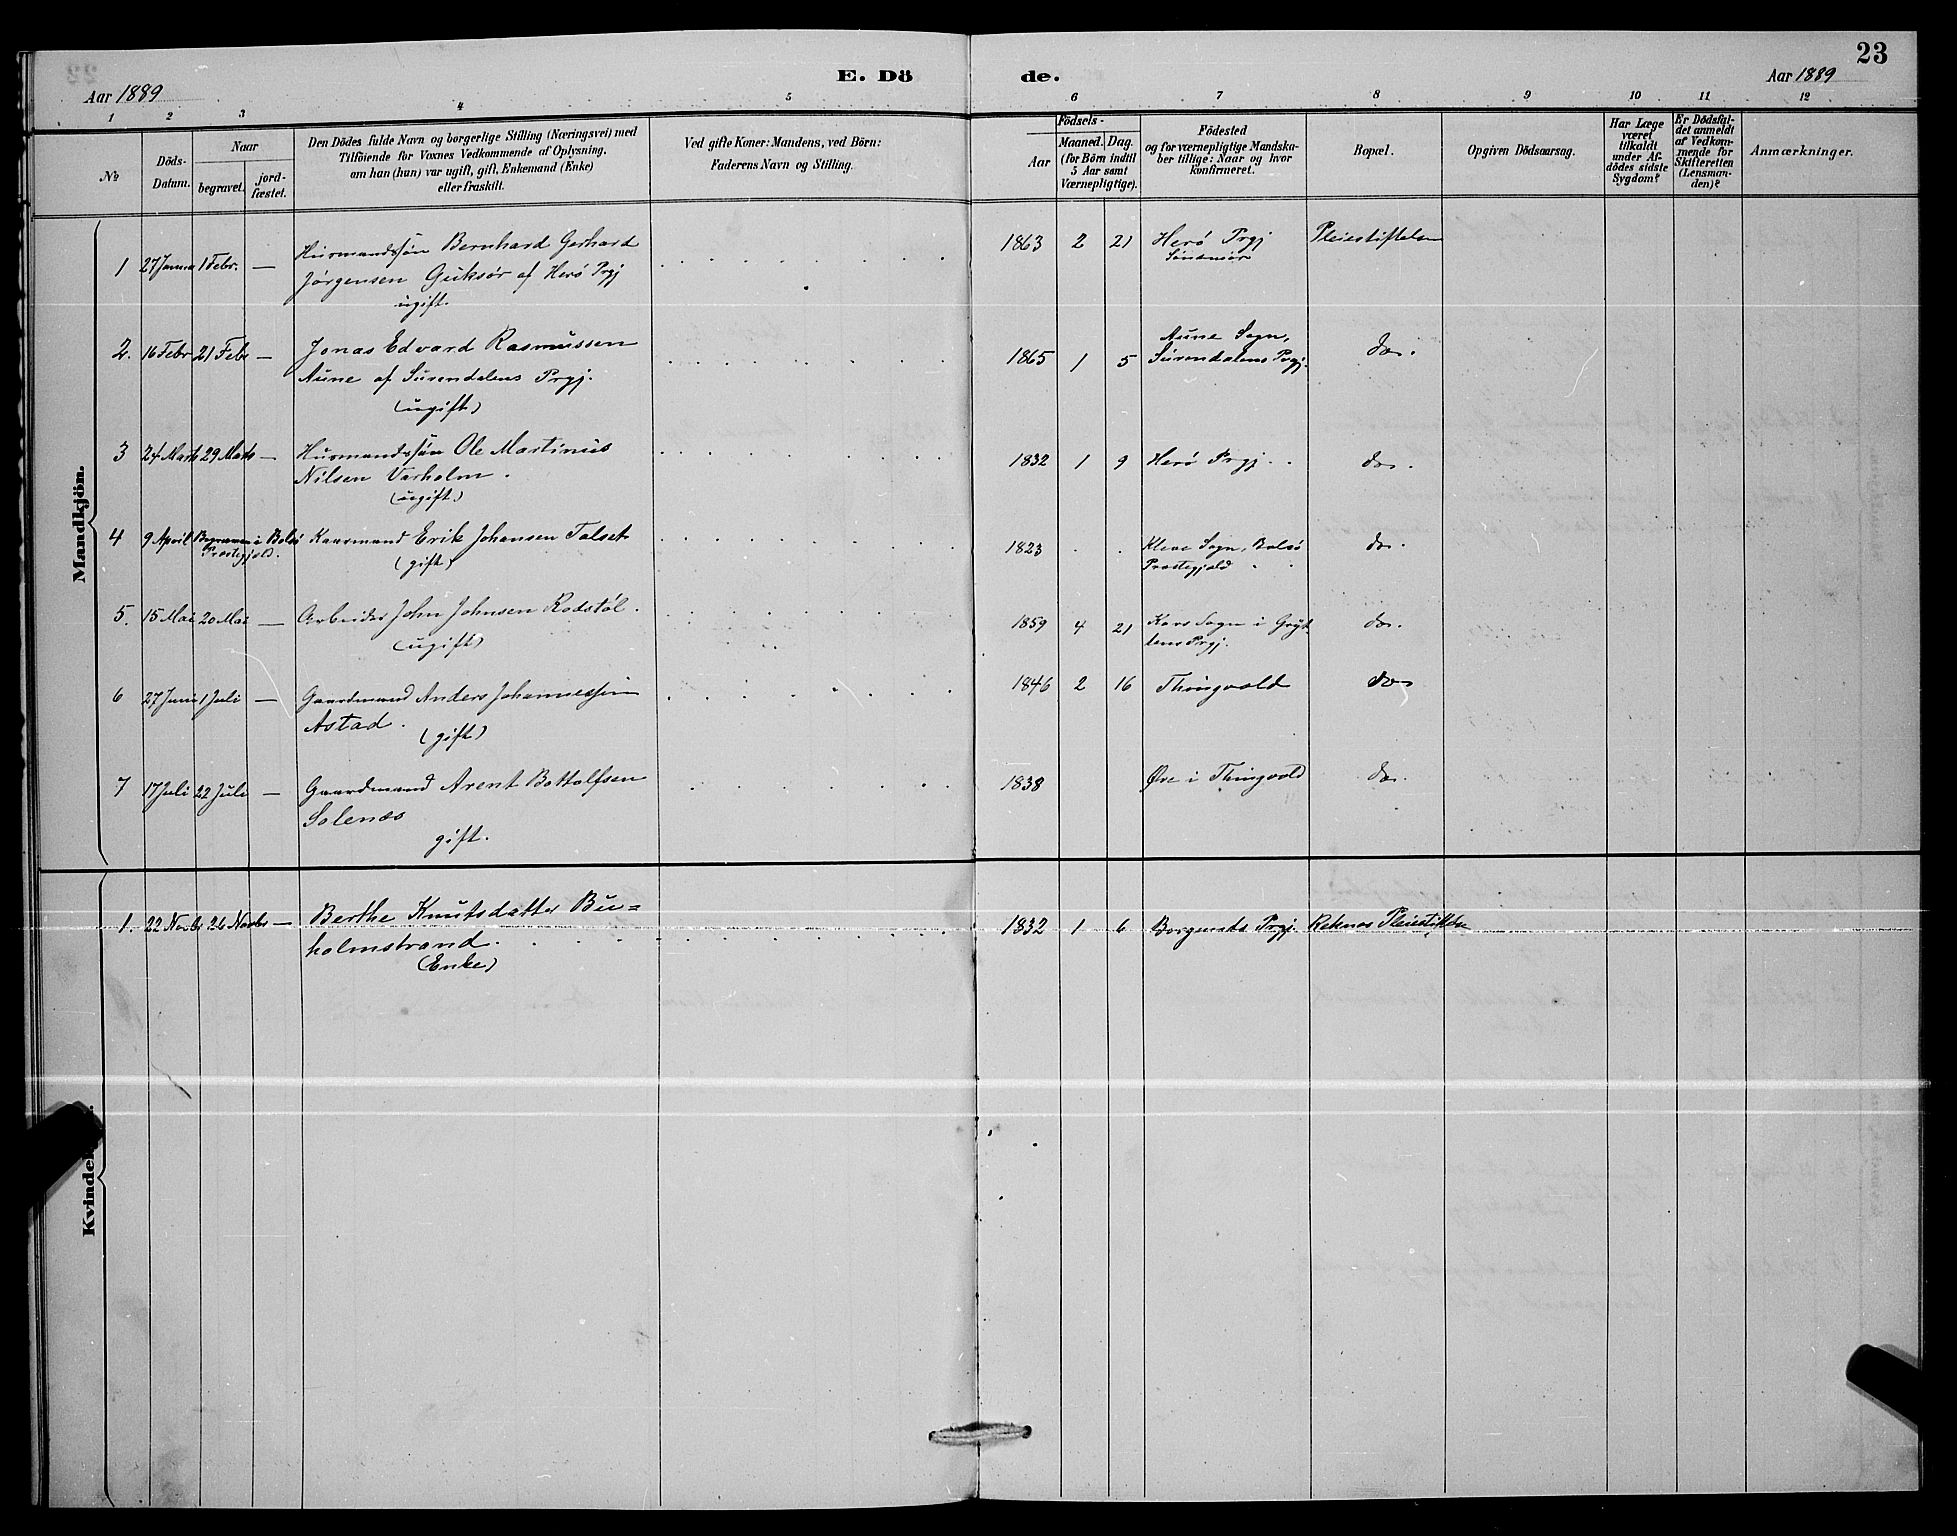 23
E. Dö de.
Aar 1889 Aar 1889
1 2 3 4 5 6 7 8 9 10 11 12
№
Döds-
Datum.
Naar
begravet.
jord-
fæstet.
Den Dödes fulde Navn og borgerlige Stilling (Næringsvei) med
Tilföiende for Voxnes Vedkommende af Oplysning,
om han (hun) var ugift, gift, Enkemand (Enke)
eller fraskilt.
Ved gifte Koner: Mandens, ved Börn:
Faderens Navn og Stilling.
Födsels-
Aar
Maaned. Dag.
(for Börn indtil
5 Aar samt
Værnepligtige).
Födested
og for værnepligtige Mandska-
ber tillige: Naar og hvor
konfirmeret.
Bopæl.
Opgiven Dödsaarsag.
Har Læge
været
tilkaldt
under Af-
dödes sidste
Sygdom?
Er Dödsfal-
det anmeldt
af Vedkom-
mende for
Skifteretten
(Lensman-
den)?
Anmærkninger.
Mandkjön.
1 27 Janua 1 Febr. — Husmandssøn Bernhard Gerhard 1863 2 21 Herö Prgj Pleiestiftelsen
Jørgensen Guksør af Herö Prgj Söndmör
ugift.
2. 16 Febr 21 Febr — Jonas Edvard Rasmussen 1865 1 5 Aune Sogn, do.
Aune af Surendalens Prgj. Surendalens Prgj.
(ugift)
3 24 Marts 29 Marts — Husmandssøn Ole Martinus 1832 1 9 Herö Prgj. do.
Nilsen Varholm.
(ugift.)
4 9 April Begraven i Bolsö Kaarmand Erik Johansen Talset 1823 . . Kleve Sogn, Bolsö do.
Præstegjæld. (gift) Præstegjæld
5. 15 Mai 20 Mai — Arbeider John Johnsen Rodstöl. 1859 4 21 Kors Sogn i Gryt- do.
(ugift) tens Prgj.
6 27 Juni 1 Juli — Gaardmand Anders Johannessen 1846 2 16 Thingvold do
Astad.
(gift)
7 17 Juli 22 Juli — Gaardmand Arent Bottolfsen 1838 Øre i Thingvold do.
Solenæs
gift.
Kvinde
1. 22 Novbr 26 Novbr — Berthe Knutsdatter Bu= 1832 1 6 Borgunds Prgj. Reknæs Pleiestiftelse
holmstrand.
(Enke)